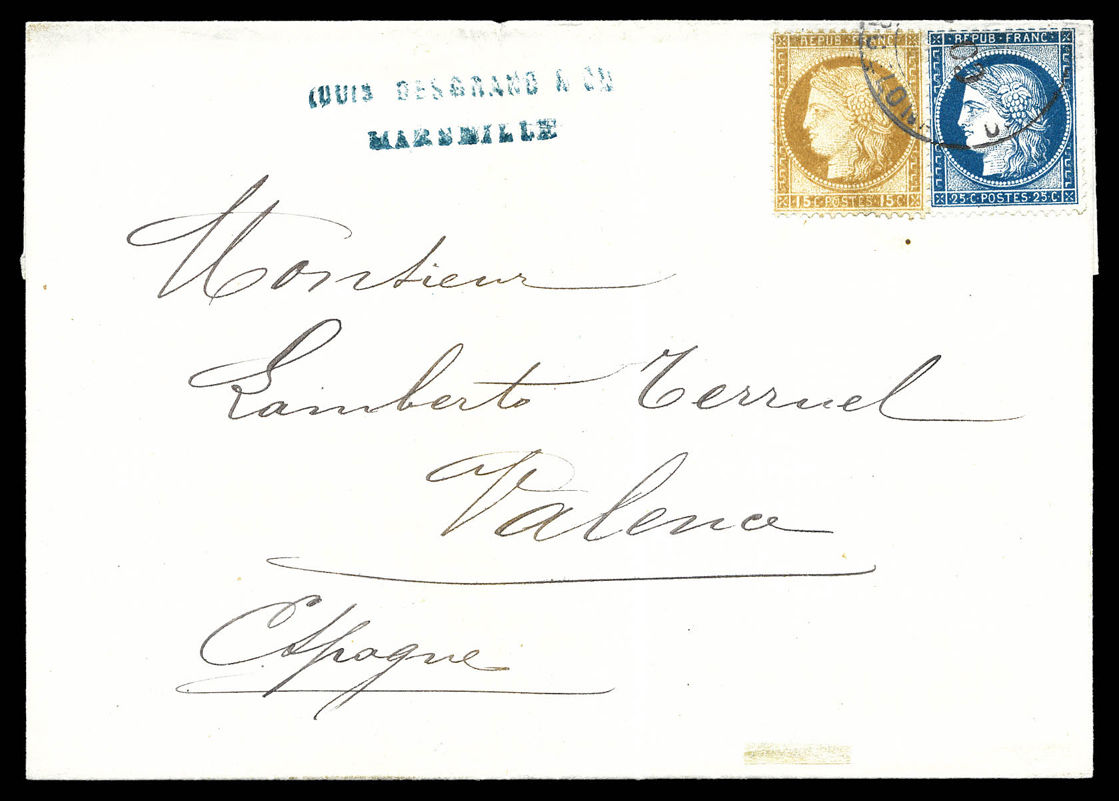 LOUIS DESGRAND & CIE
MARSEILLE
REPUB·FRANC
15·C·POSTES·15·C
REPUB·FRANC
25·C·POSTES·25·C
Monsieur
Lamberto Terruel
Valence
Espagne